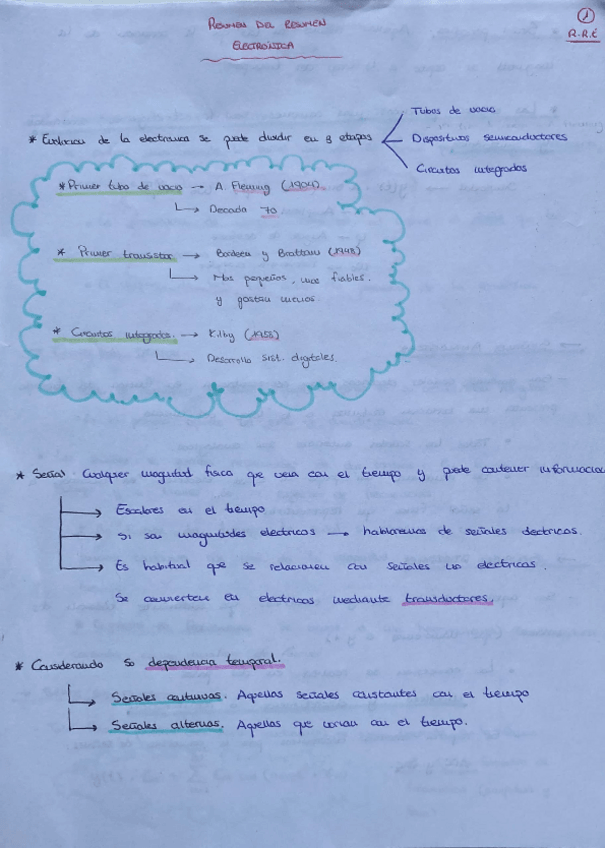 RESUMEN DEL RESUMEN
ELECTRÓNICA
1
R.R.E
* Evolucion de la electronica se puede dividir en 3 etapas
Tubos de vacio
Dispositivos semiconductores
Circuitos integrados
* Primer tubo de vacio → A. Fleming (1904)
Decada 70
* Primer transistor → Bardeen y Brattain (1948)
Mas pequeños, mas fiables.
y gastan menos
* Circuitos integrados. → Kilby (1958)
Desarrollo sist. digitales.
* Señal Cualquier magnitud fisica que varia con el tiempo y puede contener informacion
Escalares en el tiempo
Si son magnitudes electricas → hablaremos de señales electricas.
Es habitual que se relacionen con señales no electricas.
Se convierten en electricas mediante transductores.
* Considerando so dependencia temporal.
Señales continuas. Aquellas señales constantes con el tiempo
Señales alternas. Aquellas que varian con el tiempo.